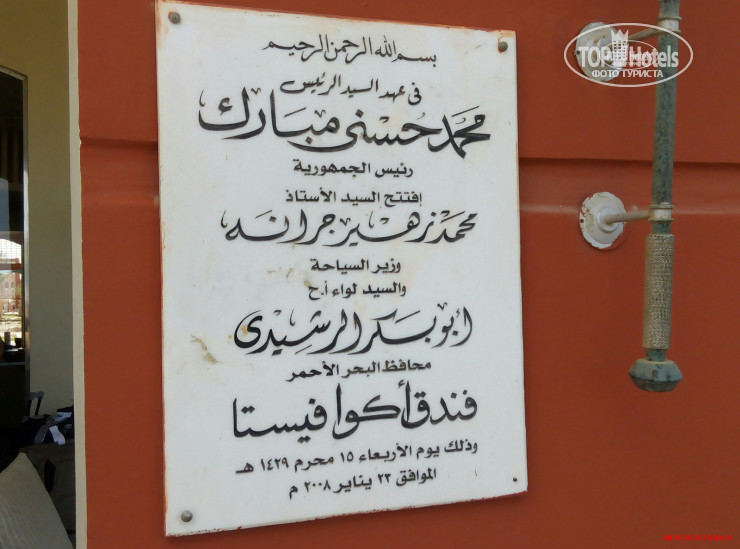 بسم الله الرحمن الرحيم
فى عهد السيد الرئيس
محمد حسنى مبارك
رئيس الجمهورية
إفتتح السيد الأستاذ
محمد زهير جرانه
وزير السياحة
والسيد لواء أ.ح
أبو بكر الرشيدى
محافظ البحر الأحمر
فندق أكوا فيستا
وذلك يوم الأربعاء ١٥ محرم ١٤٢٩ هـ
الموافق ٢٣ يناير ٢٠٠٨ م
TOP Hotels
ФОТО ТУРИСТА